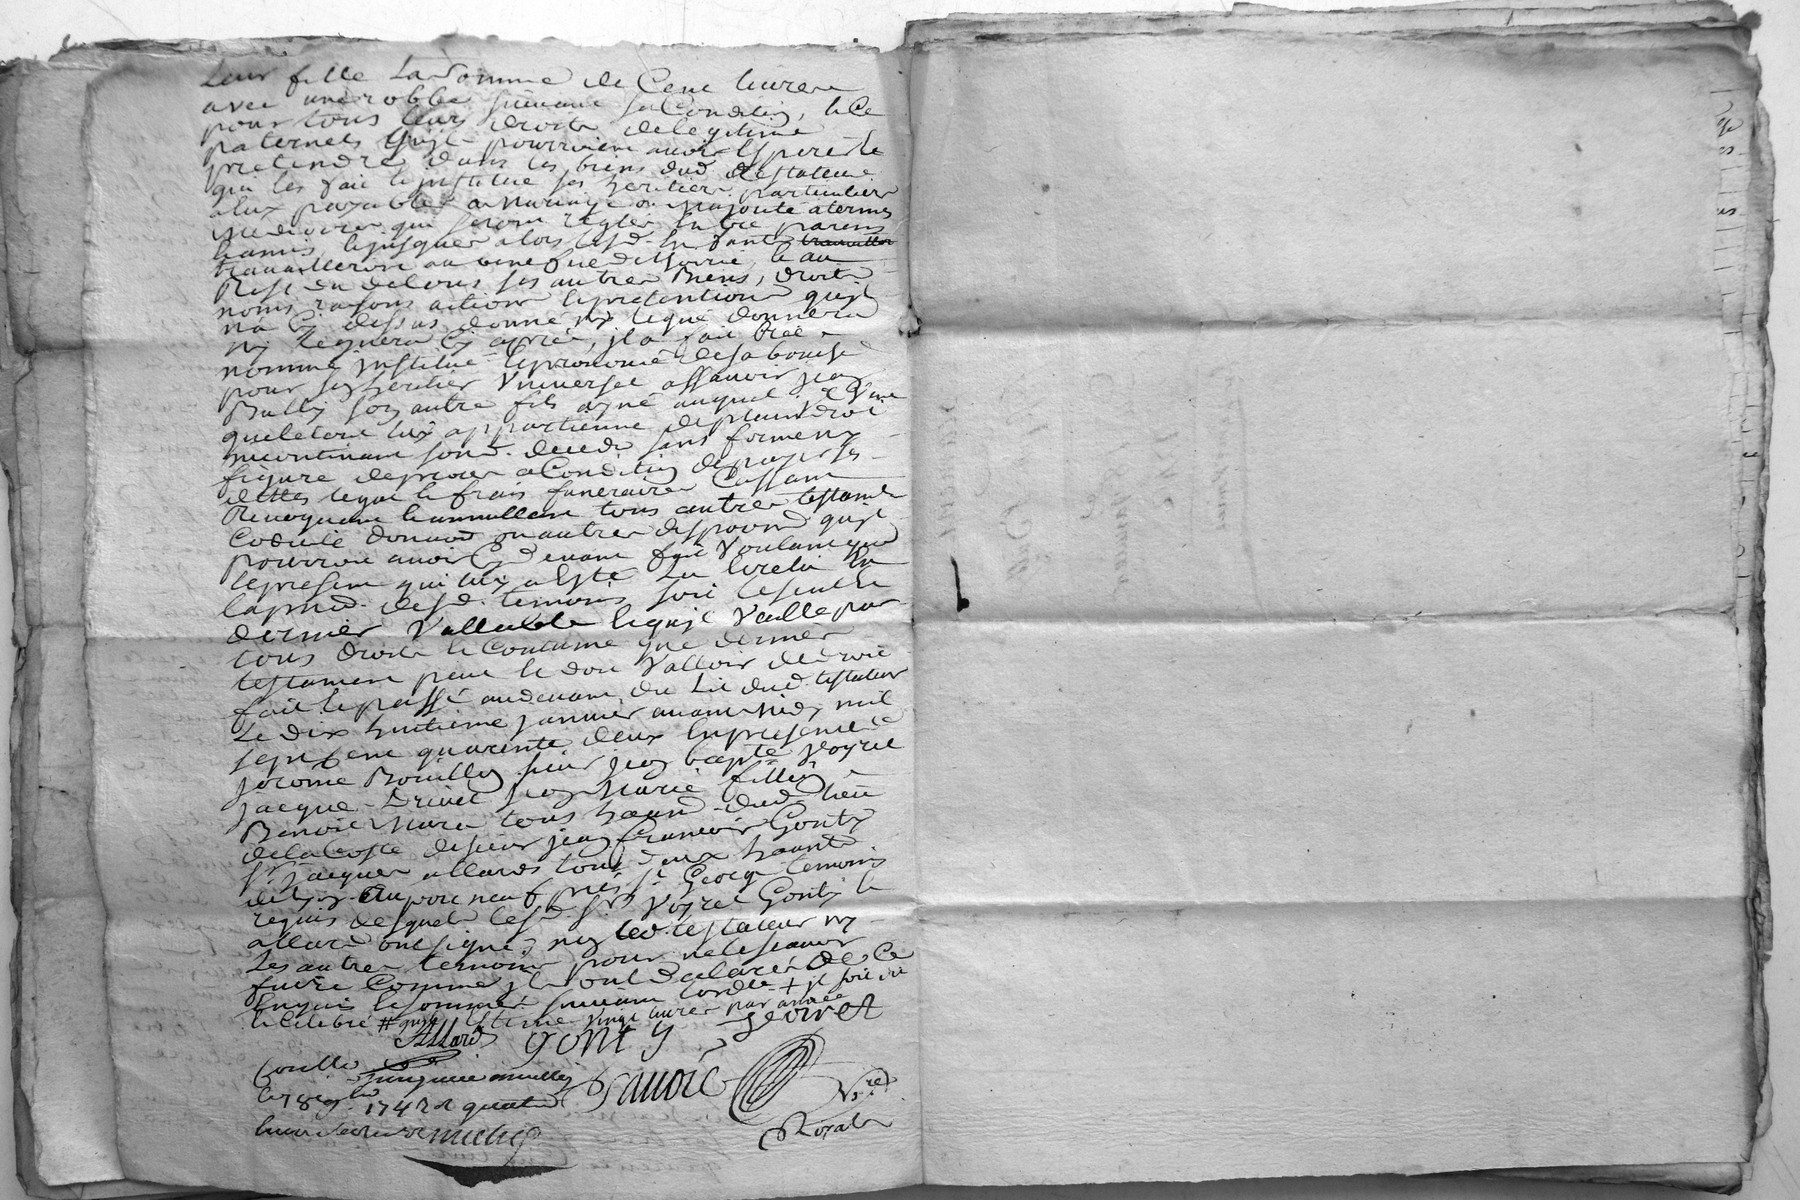 Leur fille La Somme de Cent livres
avec une robbe suivant sa Condition, & Ce
pour tous leurs droits de legitime
paternels quijl pourroient avoir Esperer &
pretendre dans les biens dud testateur
qui les fait & jnstitue ses heritiers particuliers
a eux payable a Mariage ou majorité a termes
mediocres qui seront reglés Entre parens
& amis, & jusques alors lesd. Enfants travaillor
travailleront au benefice de l'hoirie, & au
Reste du delous ses autres Biens, droits
noms raisons actions & pretentions quijl
n'a Cy dessus donné ny legué donnera
ny leguera Cy après, jl a fait Créé
nommé jnstitué & prononcé de sa bouche
pour son heritier Universel assavoir jean
son autre fils ayné auquel jl veut
que le tout luy appartienne de plain droit
jncontinant son d. deceds sans forme ny
figure de proces a Condition de payer ses
dettes legat & frais funeraires Cassant
Revoquant & annullant tous autres testaments
Codicile donation ou autres dispositions quijl
pourroit avoir Cy devant fait Voulant que
le present qui luy a Esté Lu & relu En
la pnce. desd. temoins soit le seul &
dernier Vallable & quijl Vaille par
tous droits & Coutume que dernier
testament peut & doit Valloir de droit
fait & passé au devant du Lit dud. testateur
Le dix huitieme janvier avant midy mil
sept Cent quarente deux En presence de
jerome Bouilloy sieur jean bapte Peyret
jacque Drivet jean Marie fillion
Benoit Mare tous habit. dud. lieu
de la Coste de sieur jean francois Gonty
Sr. jacques allard tous deux habts.
de Lyon au port neuf près St. George temoins
requis desquels lesd. Srs Peyret Gonty &
allard ont signé, non led. testateur ny
Les autres temoins pour ne le scavoir
faire Comme jls ont declarés de Ce
Enquis & sommés suivant lordce + jl soit dit
& Celebré # quijl Estime vingt livres par année
Allard gonty Peyret
Conllé
1742 R quatre
Royal